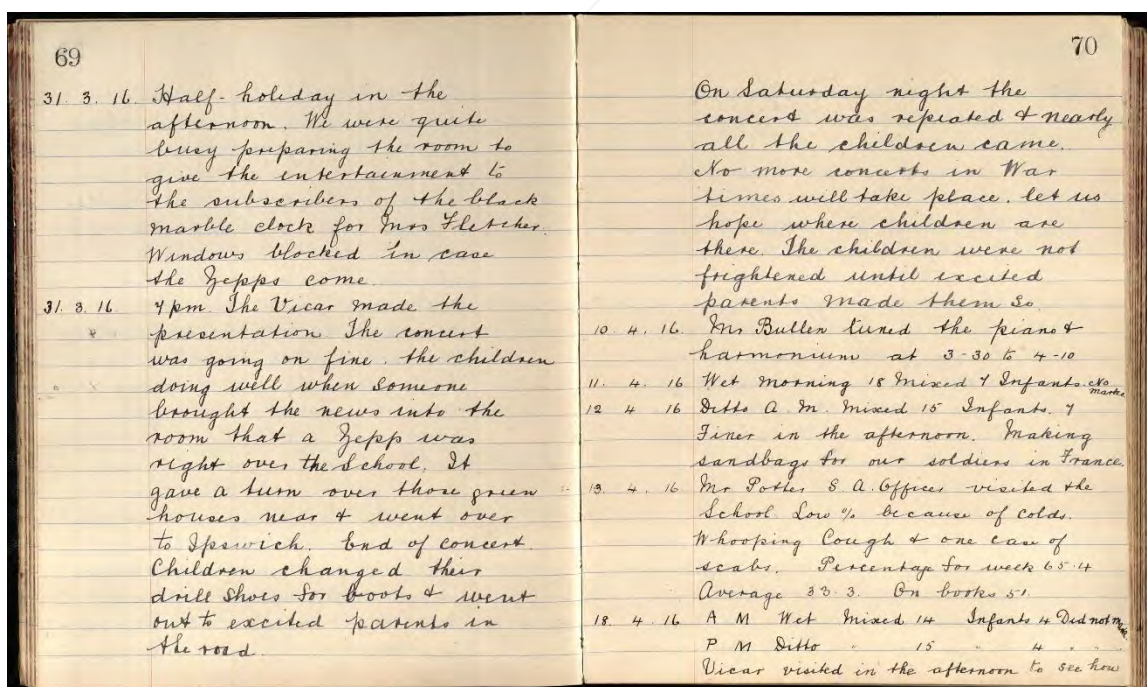 69
31. 3. 16. Half-holiday in the
afternoon. We were quite
busy preparing the room to
give the entertainment to
the subscribers of the black
marble clock for Mrs Fletcher.
Windows blocked in case
the Zepps come.
31. 3. 16. 7 pm. The Vicar made the
presentation The concert
was going on fine. the children
doing well when someone
brought the news into the
room that a Zepp was
right over the School. It
gave a turn over those green
houses near & went over
to Ipswich. End of concert.
Children changed their
drill shoes for boots & went
out to excited parents in
the road.
70
On Saturday night the
concert was repeated & nearly
all the children came.
No more concerts in War
times will take place. let us
hope where children are
there. The children were not
frightened until excited
parents made them so
10. 4. 16. Mr Bullen tuned the piano &
harmonium at 3-30 to 4-10
11. 4. 16 Wet morning 18 Mixed 7 Infants. No marks
12 4 16 Ditto A. M. Mixed 15 Infants. 7
Finer in the afternoon. Making
sandbags for our soldiers in France.
13. 4. 16 Mr Potter S. A. Officer visited the
School. Low % because of colds.
Whooping Cough & one case of
scabs. Percentage for week 65.4
Average 33.3. On books 51.
18. 4. 16 A M Wet Mixed 14 Infants 4 Did not mark.
P M Ditto " 15 " 4 " " "
Vicar visited in the afternoon to see how